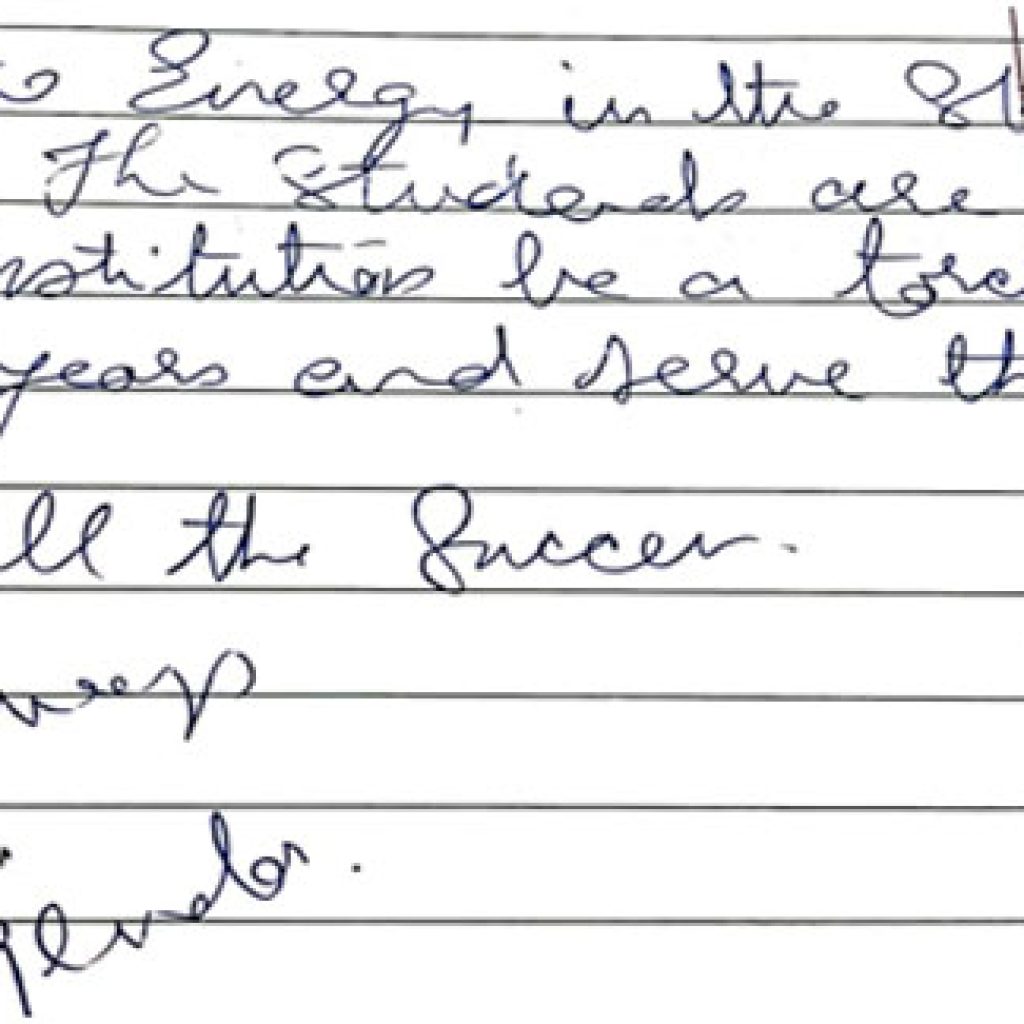 Energy in the St
The Students are
nstitution be a torc
years and serve th
all the Success.